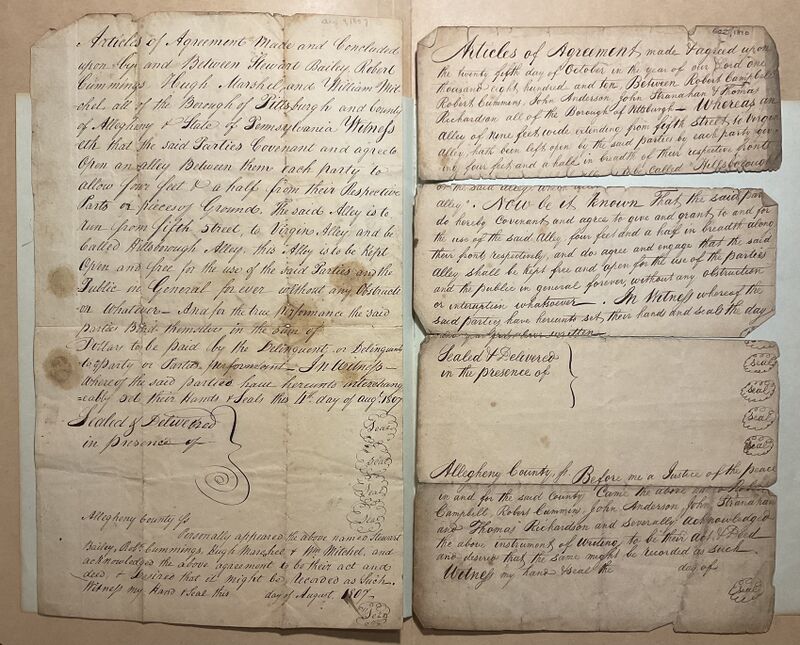 Aug 4, 1807
Articles of Agreement Made and Concluded
upon by and Between Steward Bailey Robert
Cummings Hugh Marshel and William Mit
chel all of the Borough of Pittsburgh and County
of Allegheny & State of Pennsylvania Witness
eth that the said Parties Covenant and agree to
Open an alley Between them each party to
allow four feet & a half from their Respective
Parts or pieces of Ground. The said Alley is to
run from fifth Street, to Virgin Alley and be
Called Hillsborough Alley. this Alley is to be kept
Open and free for the use of the said Parties and the
Public in General for ever without any Obstructi
on whatever – And for the true performance the said
parties Bind themselves in the sum of
Dollars to be paid by the Delinquent or Delinquen
t party or Parties – In Witness
whereof the said parties have hereunto interchang
eably set their Hands & Seals this 4th day of augt 1807
Sealed & Delivered
in presence of
Seal
Seal
Seal
Seal
Allegheny County Ss
Personally appeared the above named Steward
Bailey, Robt Cummings, Hugh Marshel & Wm Mitchel, and
acknowledged the above agreement to be their act and
deed, & Desired that it might be recorded as Such.
Witness my Hand & Seal this day of August, 1807
Seal
Oct 25/1810
Articles of Agreement, made & agreed upon
the twenty fifth day of October in the year of our Lord one
thousand eight hundred and ten, Between Robert Campbell
Robert Cummins, John Anderson, John Stranahan & Thomas
Richardson all of the Borough of Pittsburgh – Whereas an
Alley of nine feet wide extending from fifth Street, to Virgin
alley, hath been left open by the said parties by each party giv-
ing four feet and a half in breadth of their respective fronts
on the said alley, to be Called "Hillsborough
alley". Now be it known That the said par
do hereby Covenant and agree to give and grant to and for
the use of the said Alley, four feet and a half in breadth along
their front respectively, and do agree and engage that the said
Alley shall be kept free and open for the use of the parties
and the public in general forever, without any obstruction
or interuption whatsoever –. In Witness whereof the
said parties have hereunto set, their hands and seals the day
and year first above written
Sealed & Delivered
in the presence of
Seal
Seal
Seal
Seal
Seal
Allegheny County, Ss. Before me a Justice of the peace
in and for the said County Came the above named Robert
Campbell, Robert Cummin, John Anderson, John Stranahan
and Thomas Richardson and severally acknowledged
the above instrument of Writing to be their Act & Deed
and desired that the same might be recorded as such.
Witness my hand & seal the day of
Seal